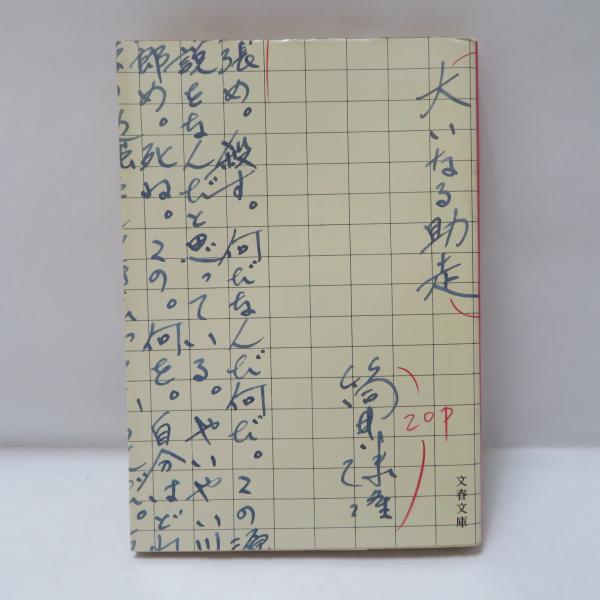 大いなる助走
筒井康隆
20P
文春文庫
張め。殺す。何だなんだ何だ。この源
説をなんだと思っている。やいやい川
郎め。死ぬ。この。何を。自分はどれ